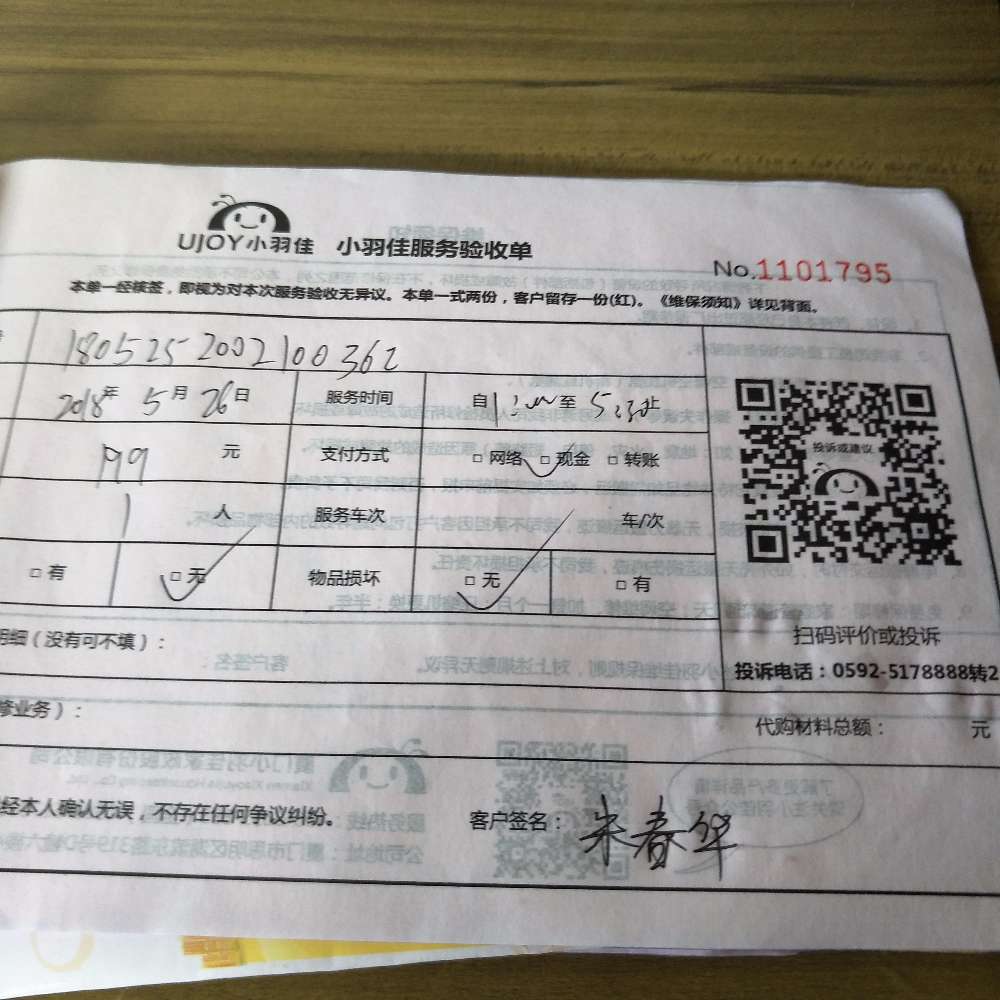 UJOY小羽佳 小羽佳服务验收单
No.1101795
本单一经核签，即视为对本次服务验收无异议。本单一式两份，客户留存一份(红)。《维保须知》详见背面。
1805252002100362
2018年 5月 26日 服务时间 自 至 5:30止
199 元 支付方式 □网络 □现金 □转账
1 人 服务车次 车/次
□有 □无 物品损坏 □无 □有
投诉或建议
扫码评价或投诉
明细（没有可不填）：
投诉电话：0592-5178888转2
修业务）：
代购材料总额： 元
经本人确认无误，不存在任何争议纠纷。
客户签名：朱春华